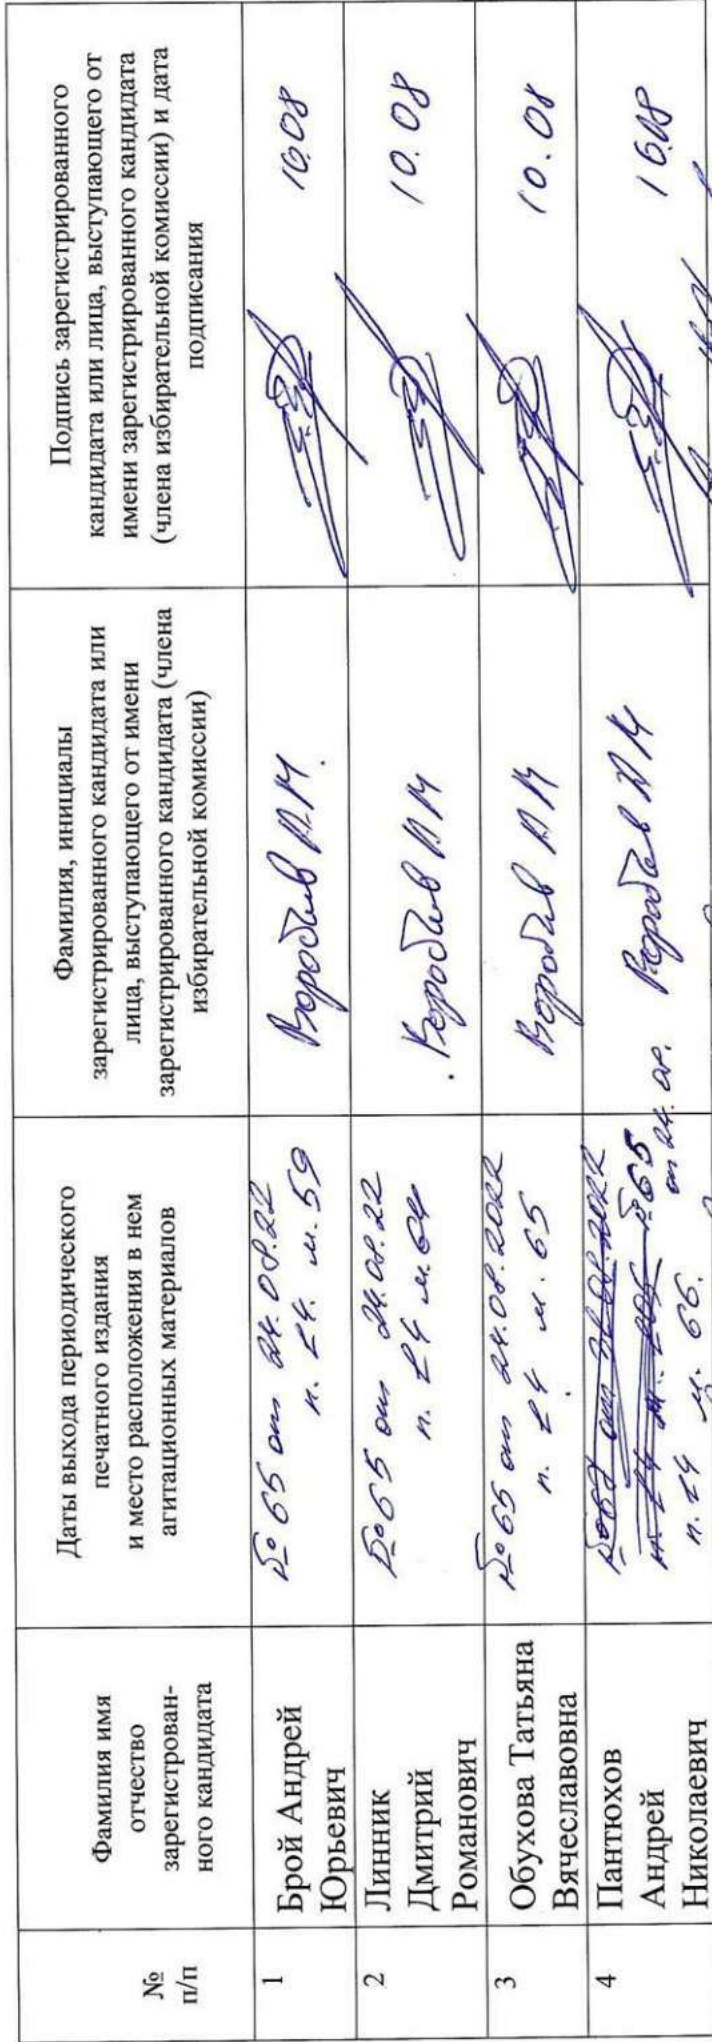 №
п/п
Фамилия имя
отчество
зарегистрирован-
ного кандидата
Даты выхода периодического
печатного издания
и место расположения в нем
агитационных материалов
Фамилия, инициалы
зарегистрированного кандидата или
лица, выступающего от имени
зарегистрированного кандидата (члена
избирательной комиссии)
Подпись зарегистрированного
кандидата или лица, выступающего от
имени зарегистрированного кандидата
(члена избирательной комиссии) и дата
подписания
1
Брой Андрей
Юрьевич
№ 65 от 24.08.22
п. 24. м. 59
Воробьев А.М.
10.08
2
Линник
Дмитрий
Романович
№ 65 от 24.08.22
п. 24 м. 64
Воробьев А М
10.08
3
Обухова Татьяна
Вячеславовна
№ 65 от 24.08.2022
п. 24 м. 65
Воробьев А М
10.08
4
Пантюхов
Андрей
Николаевич
№ 65
от 24.08.
п. 24 м. 66.
Воробьев А М
10.08